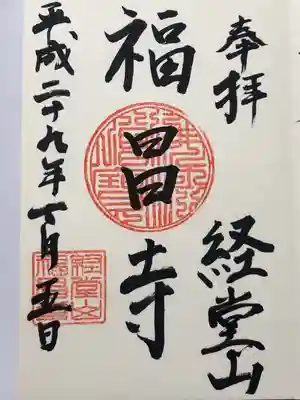 奉拝
経堂山
福昌寺
平成二十九年 月五日